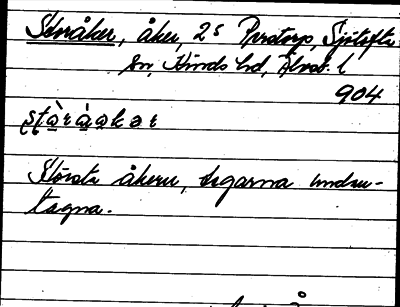 Storåker, åker, 2 s Perstorp, Sjötofta
sn, Kinds hd, Älvsb. l
904
Största åkern, hagarna undan-
tagna.